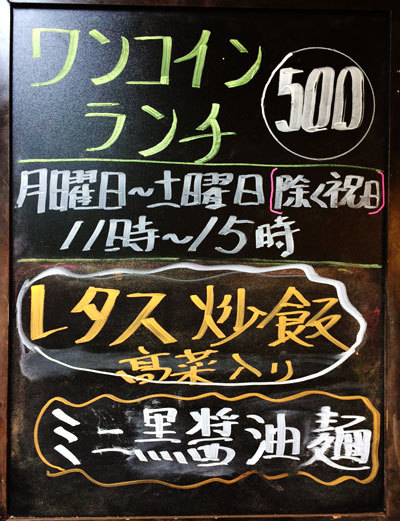 ワンコイン
ランチ
500
月曜日～土曜日[除く祝日]
11時～15時
レタス炒飯
高菜入り
ミニ黒醬油麺